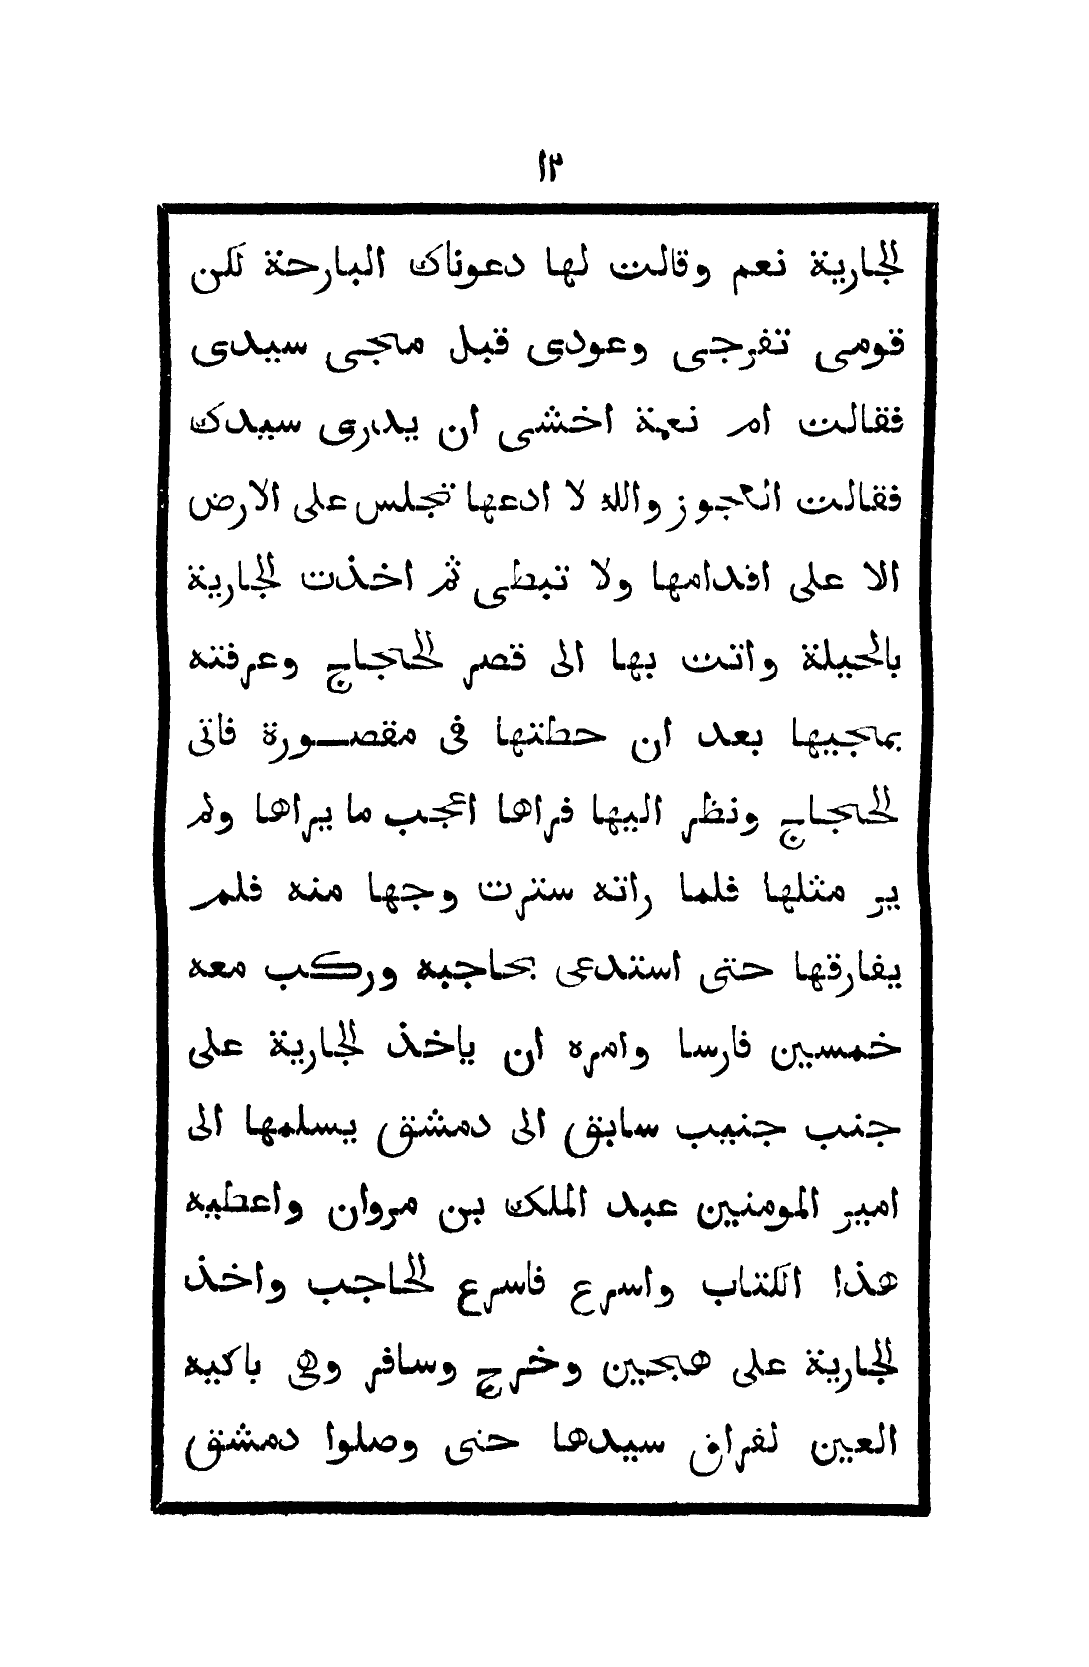 ١٢
الجارية نعم وقالت لها دعوناك البارحة لكن
قومى تفرجى وعودى قبل مجى سيدى
فقالت ام نعمة اخشى ان يدرى سيدك
فقالت العجوز والله لا ادعها تجلس على الارض
الا على اقدامها ولا تبطى ثم اخذت الجارية
بالحيلة واتت بها الى قصر الحجاج وعرفته
بمجيها بعد ان حطتها فى مقصورة فاتى
الحجاج ونظر اليها فراها اعجب ما يراها ولم
ير مثلها فلما راته سترت وجها منه فلم
يفارقها حتى استدعى بحاجبه وركب معه
خمسين فارسا وامره ان ياخذ الجارية على
جنب جنيب سابق الى دمشق يسلمها الى
امير المومنين عبد الملك بن مروان واعطيه
هذا الكتاب واسرع فاسرع الحاجب واخذ
الجارية على هجين وخرج وسافر وهى باكيه
العين لفراق سيدها حتى وصلوا دمشق